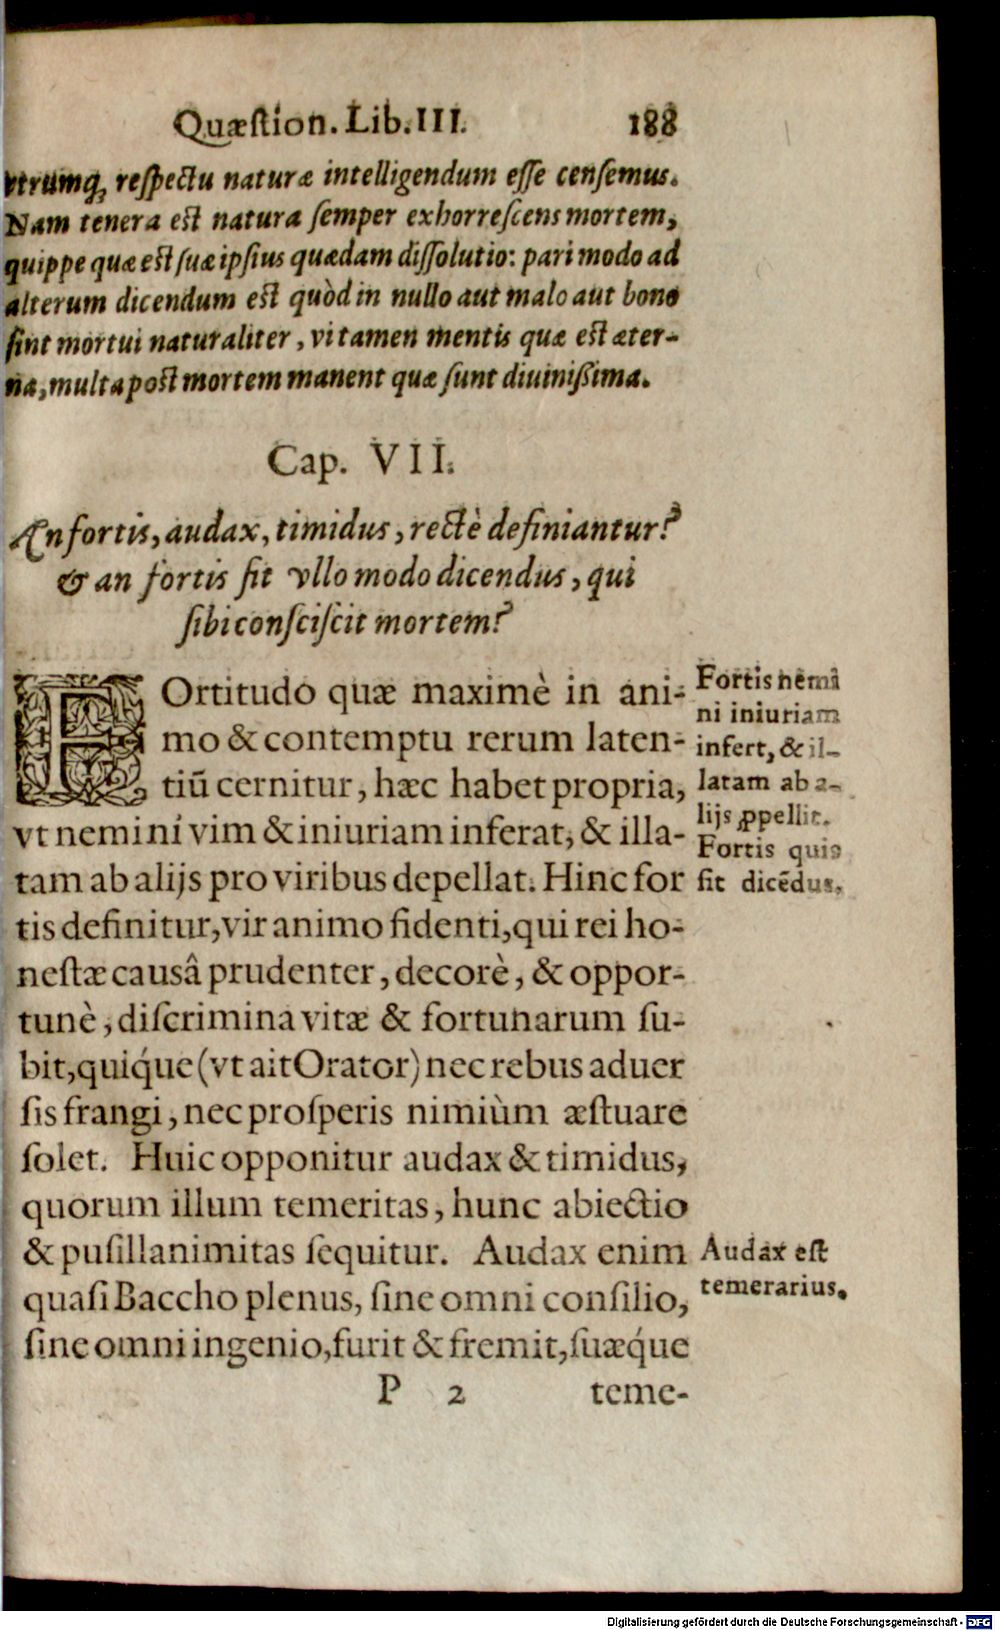 Quæſtion. Lib. III. 188
vtrumq́; reſpectu naturæ intelligendum eſſe cenſemus.
Nam tenera est natura ſemper exhorreſcens mortem,
quippe quæ est ſuæ ipſius quædam diſſolutio: pari modo ad
alterum dicendum est quòd in nullo aut malo aut bono
ſint mortui naturaliter, vi tamen mentis quæ est æter-
na, multa post mortem manent quæ ſunt diuiniſſima.
Cap. VII.
An fortis, audax, timidus, rectè definiantur?
& an fortis ſit vllo modo dicendus, qui
ſibi conſciſcit mortem?
FOrtitudo quæ maximè in ani-
mo & contemptu rerum laten-
tiũ cernitur, hæc habet propria,
vt nemini vim & iniuriam inferat, & illa-
tam ab alijs pro viribus depellat. Hinc for
tis definitur, vir animo fidenti, qui rei ho-
neſtæ causâ prudenter, decorè, & oppor-
tunè, diſcrimina vitæ & fortunarum ſu-
bit, quiq́ue (vt ait Orator) nec rebus aduer
ſis frangi, nec proſperis nimiùm æſtuare
ſolet. Huic opponitur audax & timidus,
quorum illum temeritas, hunc abiectio
& puſillanimitas ſequitur. Audax enim
quaſi Baccho plenus, ſine omni conſilio,
ſine omni ingenio, furit & fremit, ſuæq́ue
P 2 teme-
Fortis nemi
ni iniuriam
infert, & il-
latam ab a-
lijs ꝓpellit.
Fortis quis
ſit dicẽdus.
Audax eſt
temerarius.
Digitalisierung gefördert durch die Deutsche Forschungsgemeinschaft - DFG